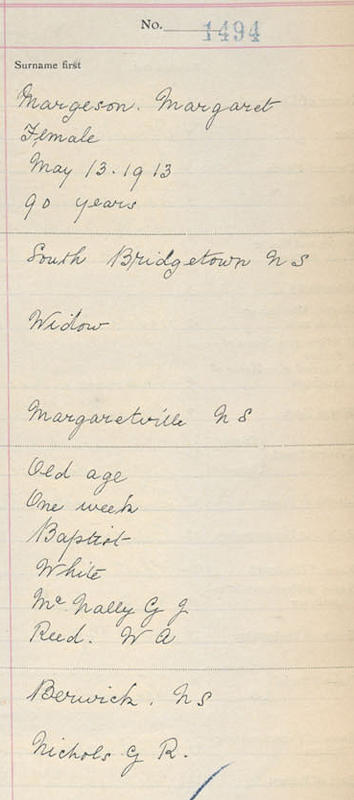 No. 1494
Surname first
Margeson. Margaret
Female
May 13. 1913
90 years
South Bridgetown N S
Widow
Margaretville N S
Old age
One week
Baptist
White
Mc Nally G J
Reed. W A
Berwick. N S
Nichols G R.